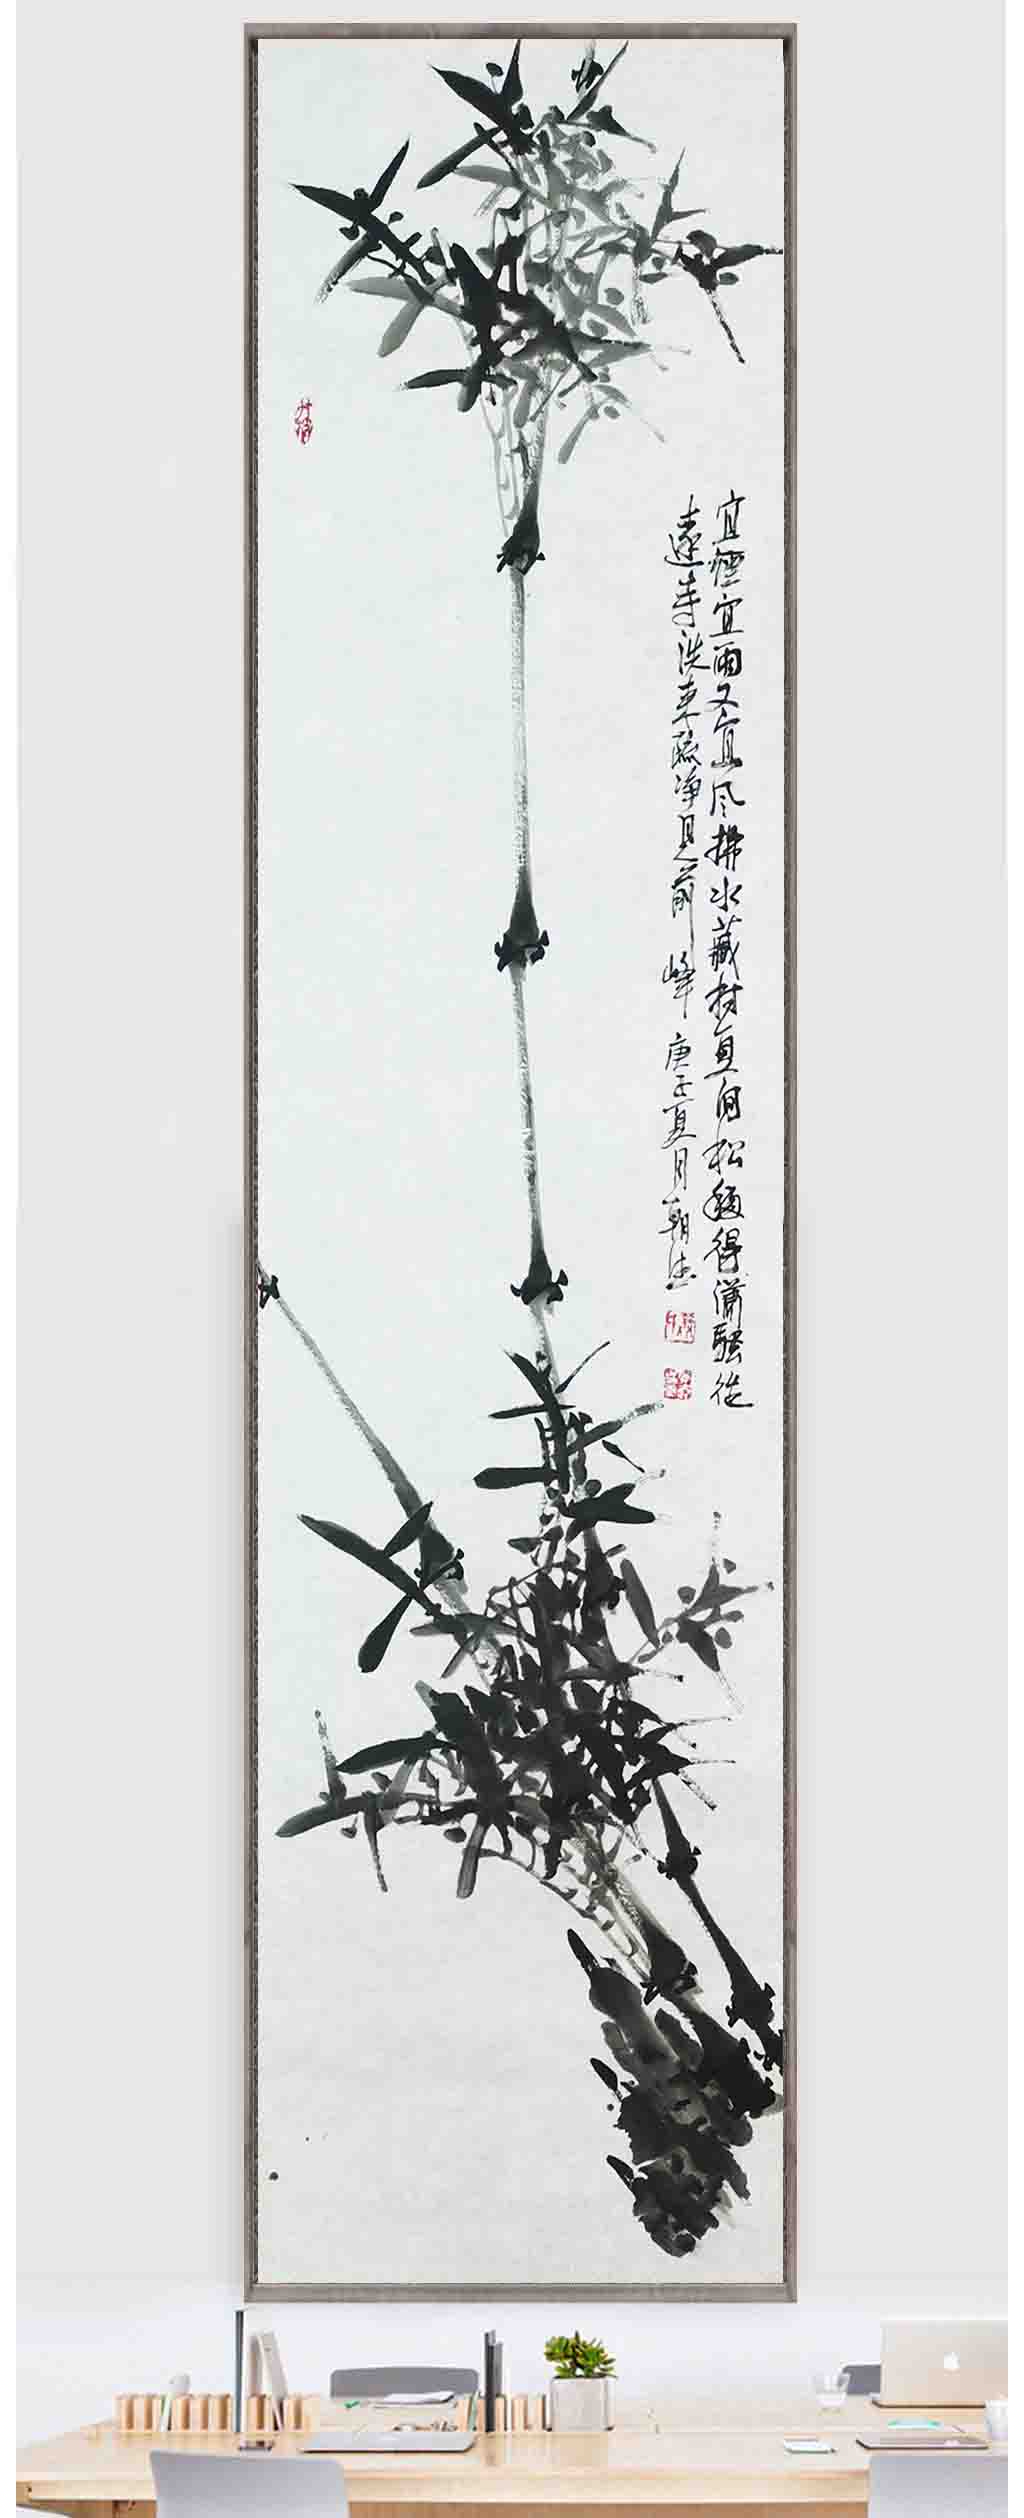 宜煙宜雨又宜风拂水藏村复间松移得潇骚從
遠寺洗来疏净見前峰 庚子夏月朝法